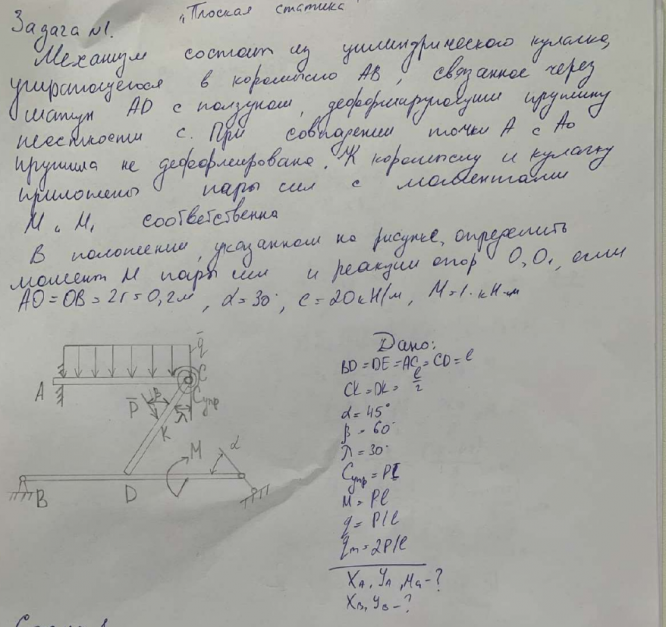 "Плоская статика"
Задача №1.
Механизм состоит из цилиндрического кулачка,
упирающегося в коромысло AB, связанное через
шатун AD с ползуном, деформирующим пружину
жесткости c. При совпадении точки A с A₀
пружина не деформирована. К коромыслу и кулачку
приложены пары сил с моментами
M и M₁ соответственна
В положении, указанном на рисунке, определить
момент M пары сил и реакции опор O, O₁, если
AO = OB = 2r = 0,2м, α = 30°, c = 20кН/м, M = 1 кН·м
Дано:
BD = DE = AC = CD = l
CK = DK = l/2
α = 45°
β = 60°
λ = 30°
Cупр = Pl
M = Pl
q = P/l
qm = 2P/l
XA, YA, MA - ?
XB, YB - ?
q
A
C
Cупр
P
β
λ
K
M
α
B
D